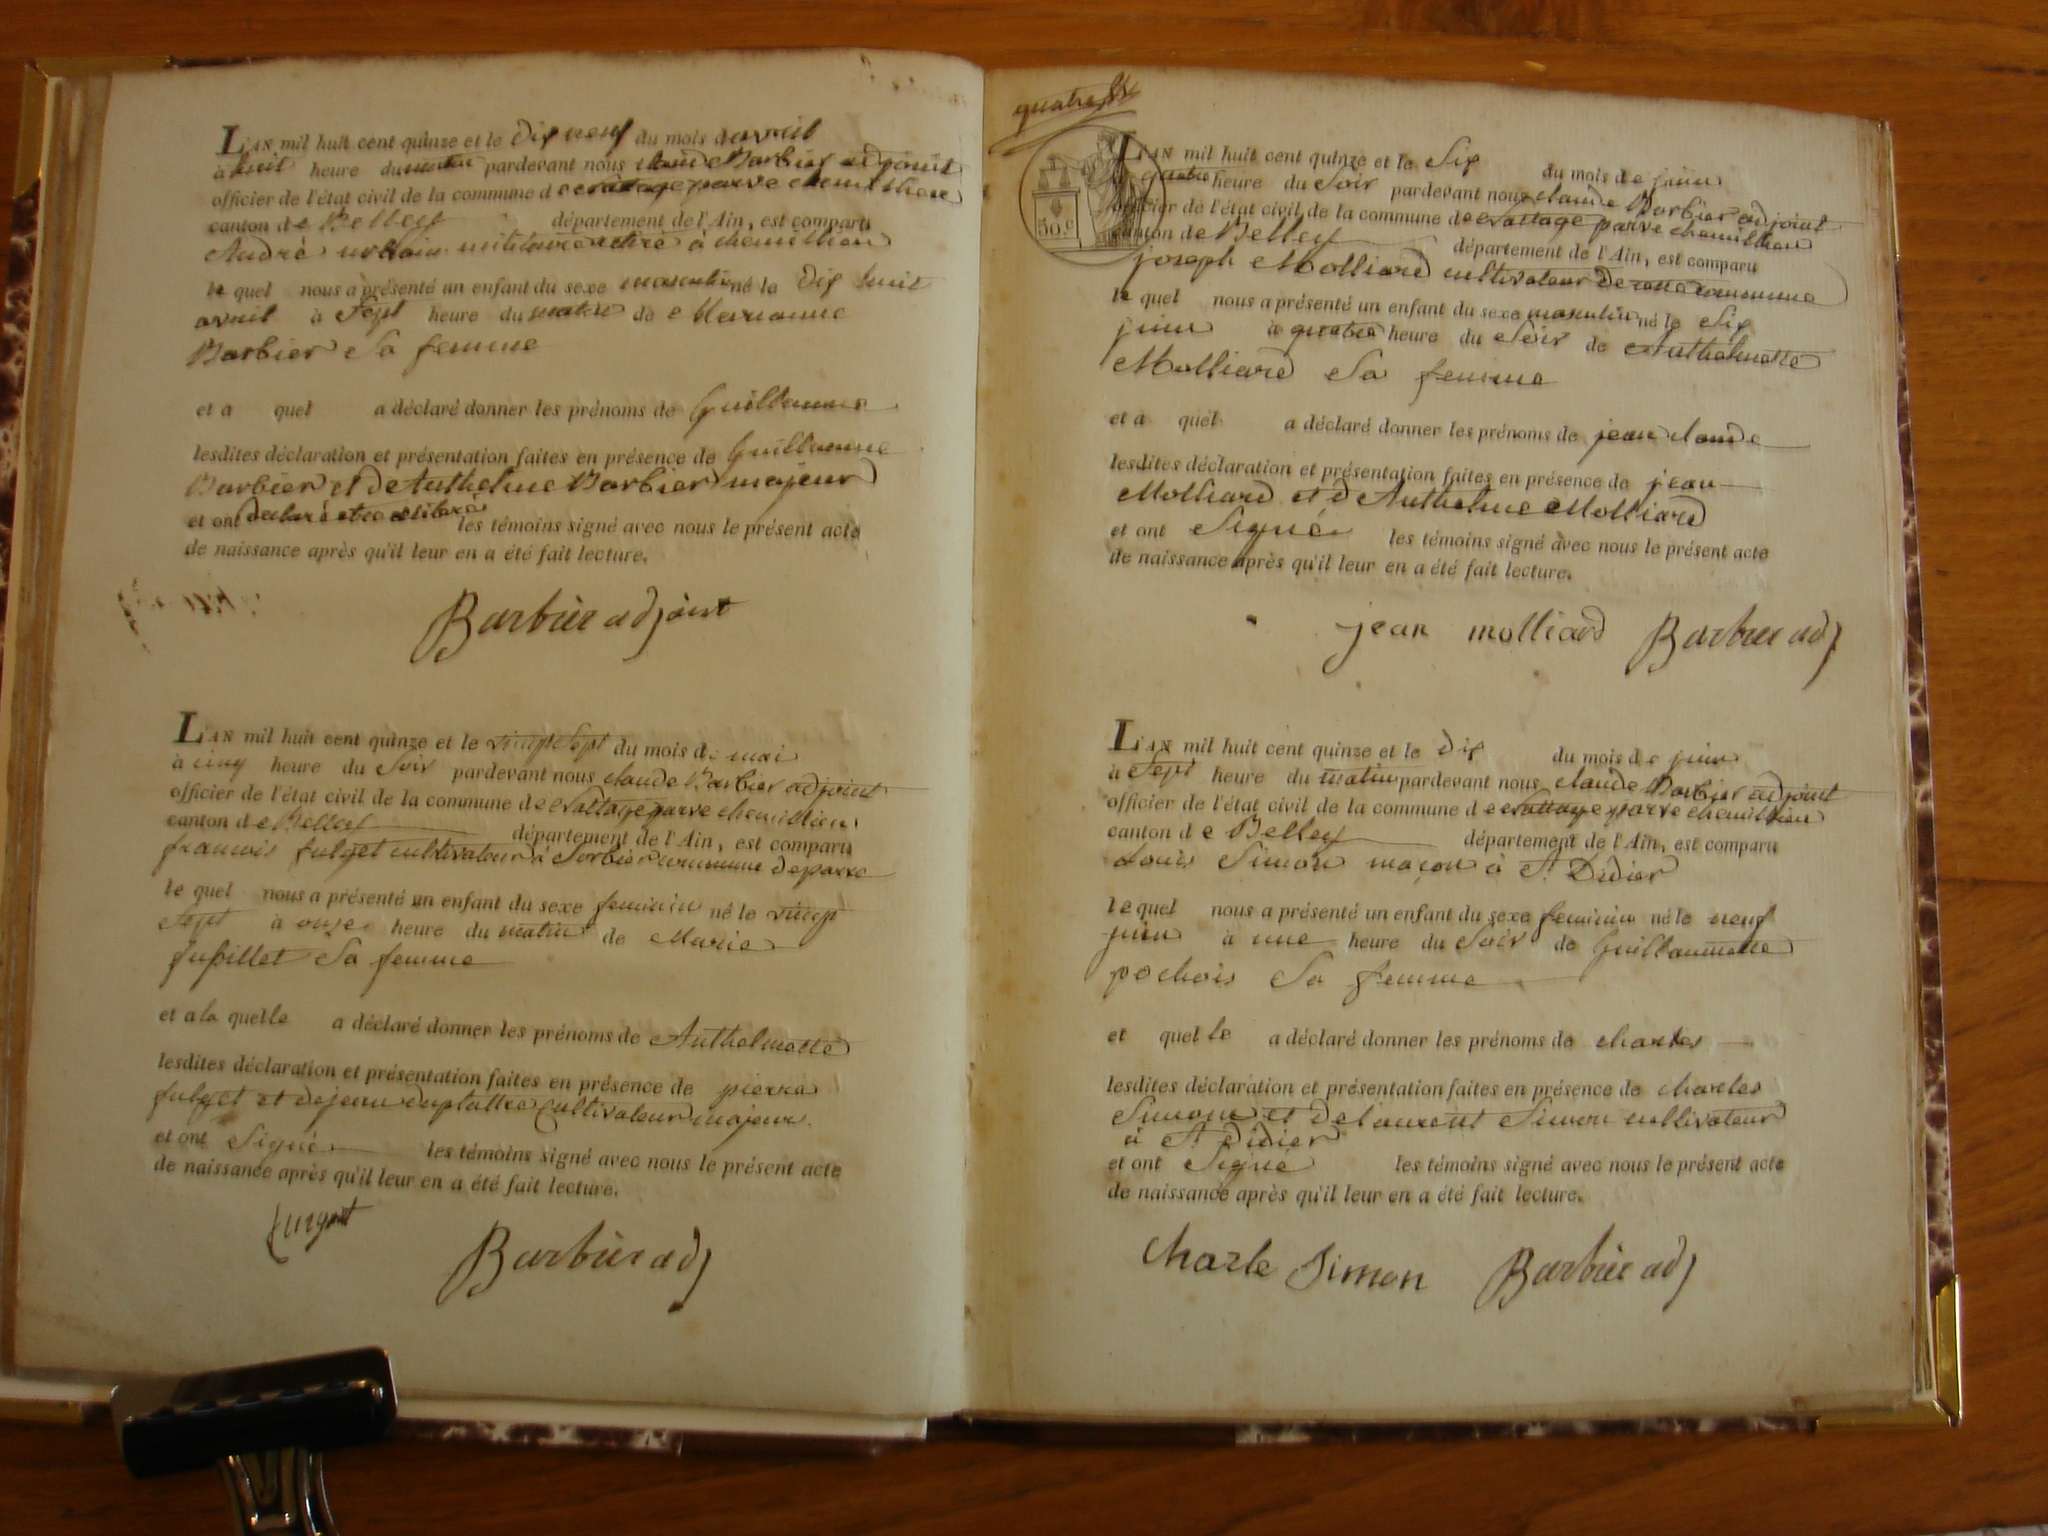 L'AN mil huit cent quinze et le dix neuf du mois d avril
à huit heure du matin pardevant nous Claude Barbier adjoint
officier de l'état civil de la commune de parve chemillieu
canton de Belley département de l'Ain, est comparu
André urbain militaire retiré à chemillieu
le quel nous a présenté un enfant du sexe masculin né le dix huit
avril à Sept heure du matin de Marianne
Barbier Sa femme
et a quel a déclaré donner les prénoms de Guillaume
lesdites déclaration et présentation faites en présence de Guillaume
Barbier et de Anthelme Barbier majeur
et ont déclaré les témoins signé avec nous le présent acte
de naissance après qu'il leur en a été fait lecture.
Barbier adjoint
L'AN mil huit cent quinze et le vingt Sept du mois de mai
à cinq heure du Soir pardevant nous claude Barbier adjoint
officier de l'état civil de la commune de parve chemillieu
canton de Belley département de l'Ain, est comparu
francois cultivateur à Sorbier commune de parve
le quel nous a présenté un enfant du sexe feminin né le vingt
Sept à onze heure du matin de Marie
Sa femme
et a la quelle a déclaré donner les prénoms de Anthelmette
lesdites déclaration et présentation faites en présence de pierre
et de jean cultivateur majeur
et ont Signé les témoins signé avec nous le présent acte
de naissance après qu'il leur en a été fait lecture.
Barbier adj
quatre
50 c
L'AN mil huit cent quinze et le Six du mois de juin
à quatre heure du Soir pardevant nous claude Barbier adjoint
officier de l'état civil de la commune de parve chemillieu
canton de Belley département de l'Ain, est comparu
joseph Molliard cultivateur de cette commune
le quel nous a présenté un enfant du sexe masculin né le Six
juin à quatre heure du Soir de Anthelmette
Molliard Sa femme
et a quel a déclaré donner les prénoms de jean claude
lesdites déclaration et présentation faites en présence de jean
Molliard et d Anthelme Molliard
et ont Signé les témoins signé avec nous le présent acte
de naissance après qu'il leur en a été fait lecture.
jean molliard Barbier adj
L'AN mil huit cent quinze et le dix du mois de juin
à Sept heure du matin pardevant nous claude Barbier adjoint
officier de l'état civil de la commune de parve chemillieu
canton de Belley département de l'Ain, est comparu
Louis Simon maçon à St. Didier
le quel nous a présenté un enfant du sexe feminin né le neuf
juin à une heure du Soir de Guillaumette
pochois Sa femme
et quel le a déclaré donner les prénoms de charles
lesdites déclaration et présentation faites en présence de charles
Simon et de laurent Simon cultivateur
à St. Didier
et ont Signé les témoins signé avec nous le présent acte
de naissance après qu'il leur en a été fait lecture.
Charle Simon Barbier adj